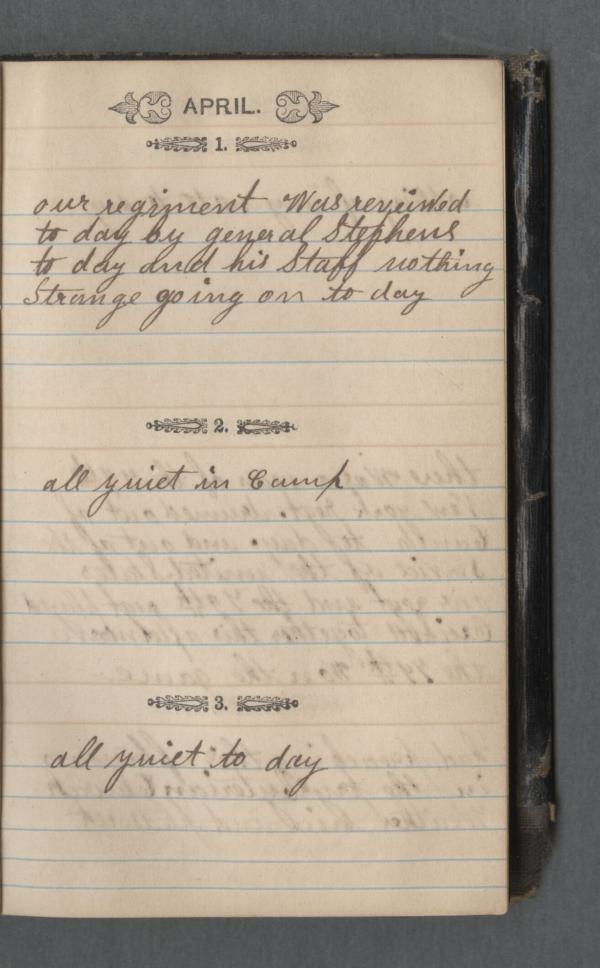 APRIL.
1.
our regiment Was reveiwed
to day by general Stephens
to day and his Staff nothing
Strange going on to day
2.
all quiet in Camp
3.
all quiet to day